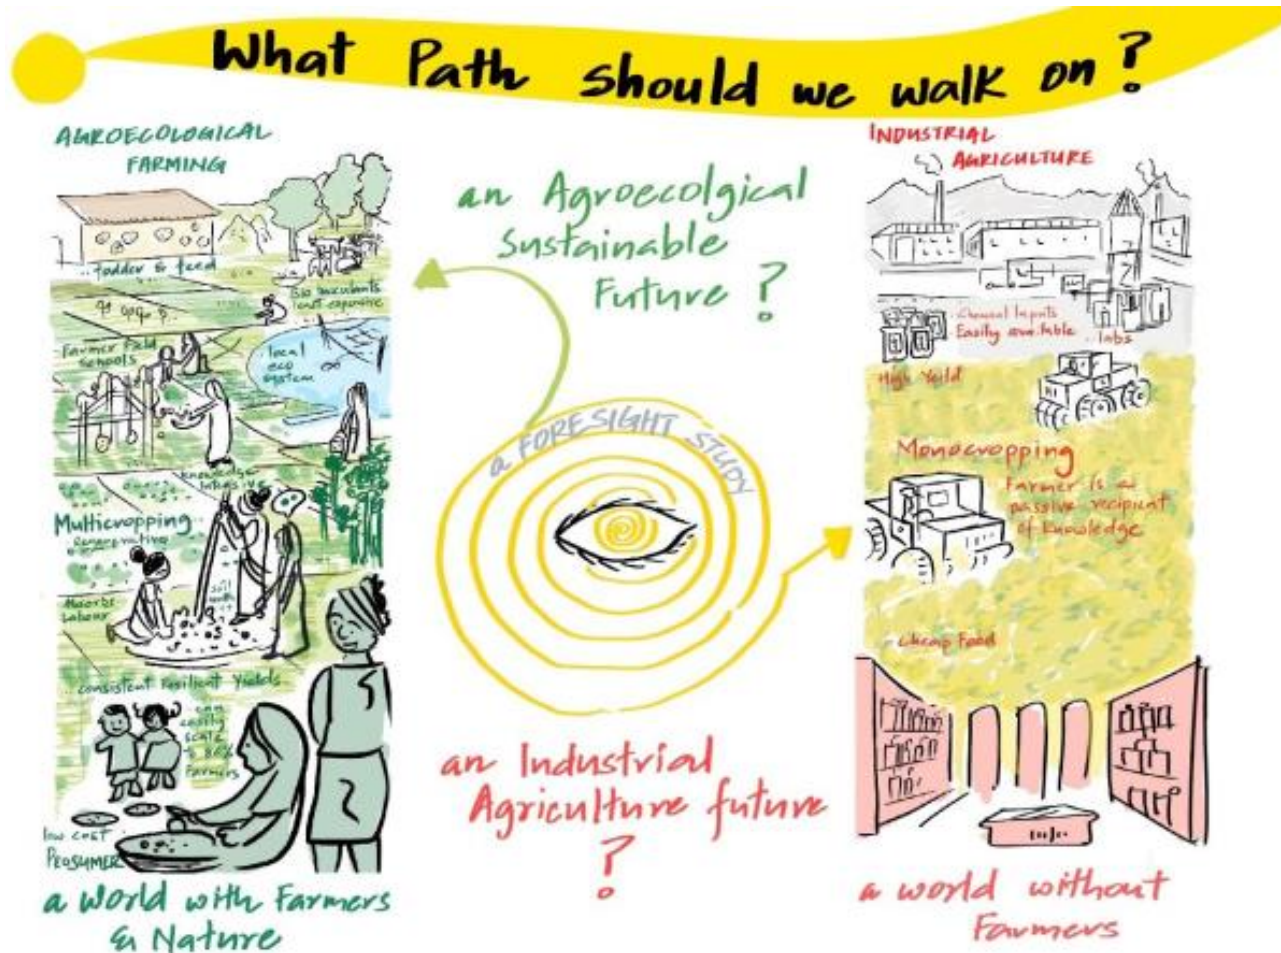 What Path should we walk on?
AGROECOLOGICAL
FARMING
fodder & feed
Farmer Field
Schools
local
eco
system
knowledge
Multicropping
regenerative
Absorbs
Labour
soil
consistent Resilient Yields
can
easily
scale
Farmers
low cost
PROSUMER
a World with Farmers
& Nature
an Agroecolgical
Sustainable
Future?
a FORESIGHT STUDY
an Industrial
Agriculture future
?
INDUSTRIAL
AGRICULTURE
Chemical Inputs
Easily available
.. labs
High Yeild
Monocropping
Farmer is a
passive recipient
of knowledge
Cheap Food
a world without
Farmers